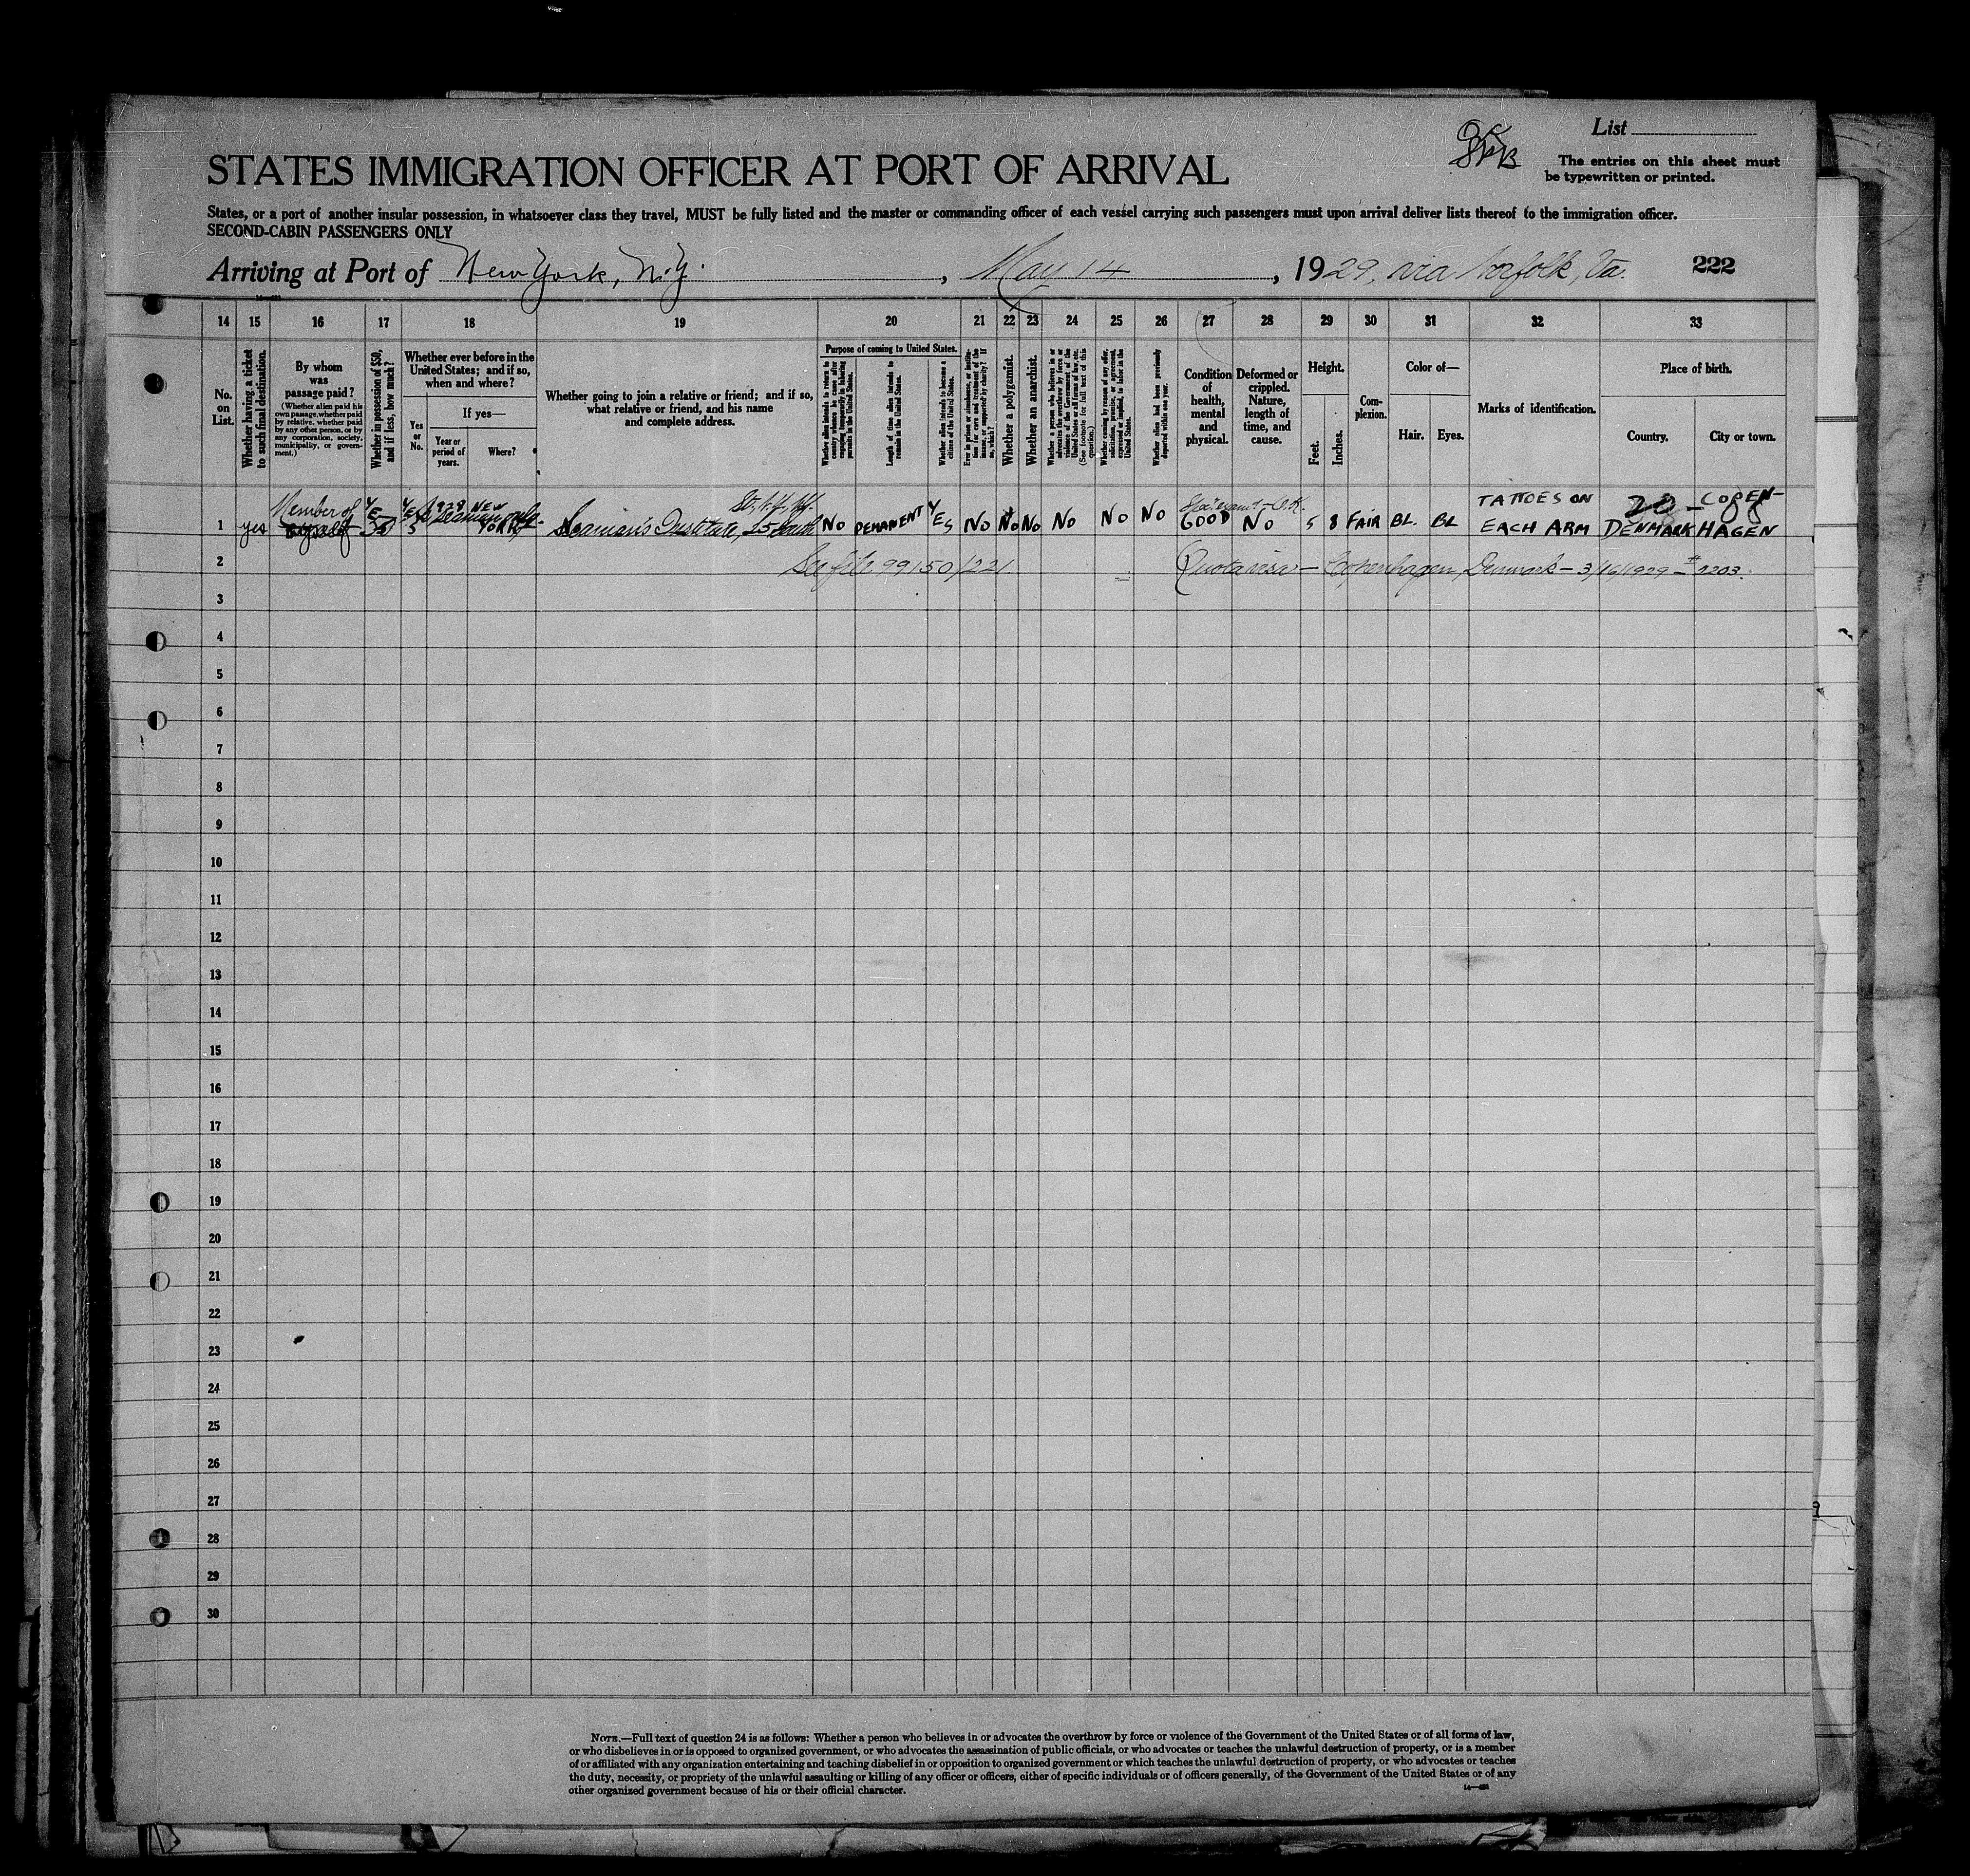 List
OK
The entries on this sheet must
be typewritten or printed.
STATES IMMIGRATION OFFICER AT PORT OF ARRIVAL
States, or a port of another insular possession, in whatsoever class they travel, MUST be fully listed and the master or commanding officer of each vessel carrying such passengers must upon arrival deliver lists thereof to the immigration officer.
SECOND-CABIN PASSENGERS ONLY
Arriving at Port of New York, N.Y. , May 14 , 1929, via Norfolk, Va. 222
14 15 16 17 18 19 20 21 22 23 24 25 26 27 28 29 30 31 32 33
No.
on
List.
Whether having a ticket
to such final destination.
By whom
was
passage paid?
(Whether alien paid his
own passage, whether paid
by relative, whether paid
by any other person, or by
any corporation, society,
municipality, or govern-
ment.)
Whether in possession of $50,
and if less, how much?
Whether ever before in the
United States; and if so,
when and where?
Yes
or
No.
If yes—
Year or
period of
years.
Where?
Whether going to join a relative or friend; and if so,
what relative or friend, and his name
and complete address.
Purpose of coming to United States.
Whether alien intends to return to
country whence he came after
engaging temporarily in laboring
pursuits in the United States.
Length of time alien intends to
remain in the United States.
Whether alien intends to become a
citizen of the United States.
Ever in prison or almshouse, or institu-
tion for care and treatment of the
insane, or supported by charity? If
so, which?
Whether a polygamist.
Whether an anarchist.
Whether a person who believes in or
advocates the overthrow by force or
violence of the Government of the
United States or all forms of law, etc.
(See footnote for full text of this
question.)
Whether coming by reason of any offer,
solicitation, promise, or agreement,
expressed or implied, to labor in the
United States.
Whether alien had been previously
deported within one year.
Condition
of
health,
mental
and
physical.
Deformed or
crippled.
Nature,
length of
time, and
cause.
Height.
Feet.
Inches.
Com-
plexion.
Color of—
Hair. Eyes.
Marks of identification.
Place of birth.
Country. City or town.
Member of YE YE 1929 NEW St, N.Y., N.Y. Y O.K. TATTOES ON 20 COPEN-
1 yes myself 50 S Seaman only YORK Seaman's Institute, 25 South NO PERMANENT ES NO NO NO NO NO NO GOOD NO 5 8 FAIR BL. BL EACH ARM DENMARK HAGEN
2 See file 99150/221 Quota visa — Copenhagen, Denmark — 3/16/1929 — # 2203.
3
4
5
6
7
8
9
10
11
12
13
14
15
16
17
18
19
20
21
22
23
24
25
26
27
28
29
30
NOTE.—Full text of question 24 is as follows: Whether a person who believes in or advocates the overthrow by force or violence of the Government of the United States or of all forms of law,
or who disbelieves in or is opposed to organized government, or who advocates the assassination of public officials, or who advocates or teaches the unlawful destruction of property, or is a member
of or affiliated with any organization entertaining and teaching disbelief in or opposition to organized government or which teaches the unlawful destruction of property, or who advocates or teaches
the duty, necessity, or propriety of the unlawful assaulting or killing of any officer or officers, either of specific individuals or of officers generally, of the Government of the United States or of any
other organized government because of his or their official character.